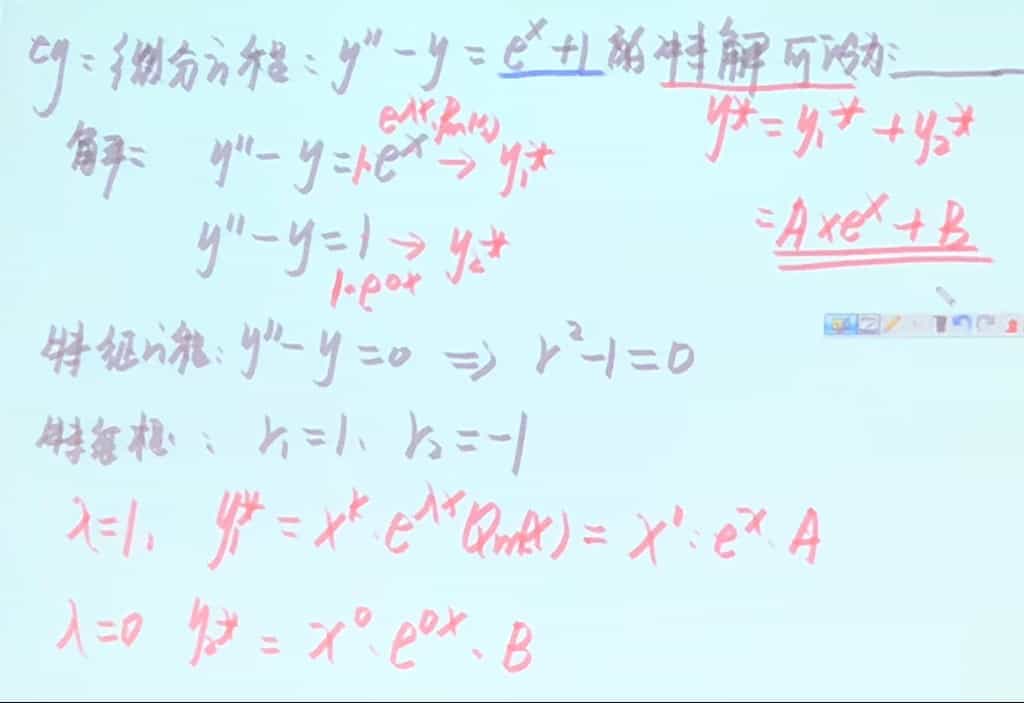 eg: 微分方程: y'' - y = e^x + 1 的特解可设为: ____
e^{λx}·P_m(x)
y* = y₁* + y₂*
解: y'' - y = 1·e^x → y₁*
= Axe^x + B
y'' - y = 1 → y₂*
1·e^{0x}
特征方程: y'' - y = 0 ⇒ r² - 1 = 0
特征根: r₁ = 1, r₂ = -1
λ=1, y₁* = x^k·e^{λx}Q_m(x) = x¹·e^x·A
λ=0 y₂* = x⁰·e^{0x}·B